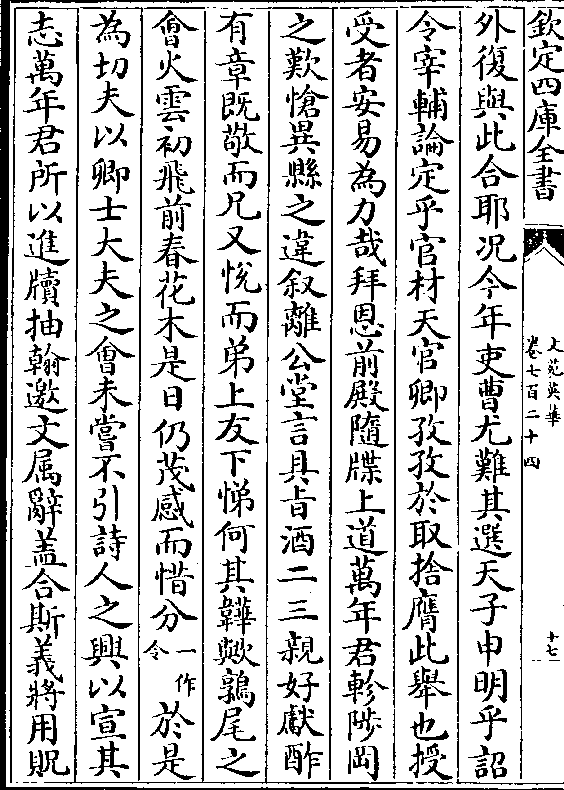 欽定四庫全書
文苑英華
卷七百二十四
十七
外復與此合耶况今年吏曹尤難其選天子申明乎詔
令宰輔論定乎官材天官卿孜孜於取捨膺此舉也授
受者安易為力哉拜恩前殿隨牒上道萬年君軫陟岡
之歎愴異縣之違叙離公堂言具旨酒二三親好獻酢
有章既敬而兄又悅而弟上友下悌何其韡歟鶉尾之
會火雲初飛前春花木是日仍茂感而惜分一作令於是
為切夫以卿士大夫之會未嘗不引詩人之興以宣其
志萬年君所以進牘抽翰邀文属辭盖合斯義將用貺